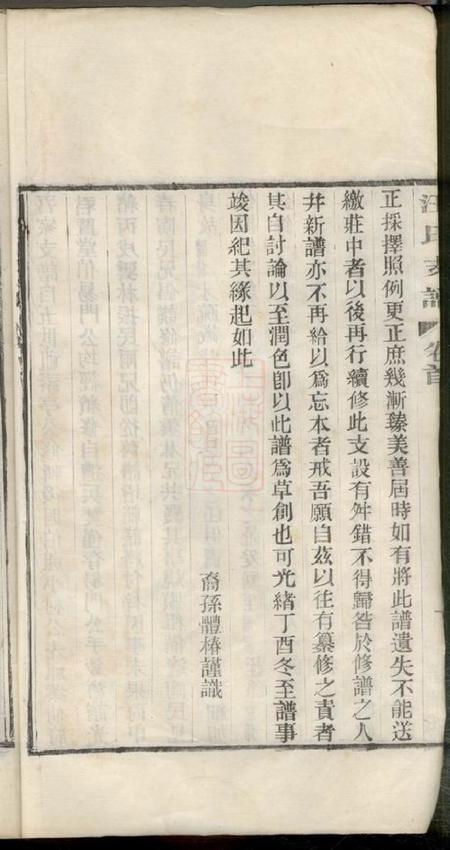 汪氏支譜 卷首
正採擇照例更正庶幾漸臻美善屆時如有將此譜遺失不能送
繳莊中者以後再行續修此支設有舛錯不得歸咎於修譜之人
幷新譜亦不再給以爲忘本者戒吾願自茲以往有纂修之責者
其自討論以至潤色卽以此譜爲草創也可光緒丁酉冬至譜事
竣因紀其緣起如此
裔孫體椿謹識